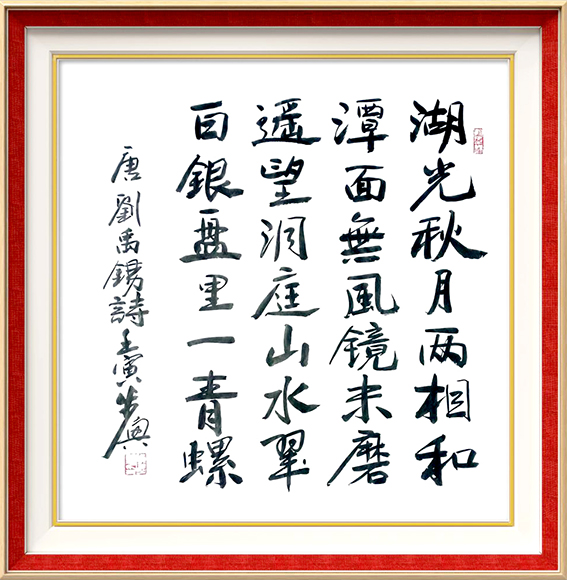 湖光秋月两相和
潭面無風镜未磨
遥望洞庭山水翠
白銀盤里一青螺
唐劉禹錫詩壬寅